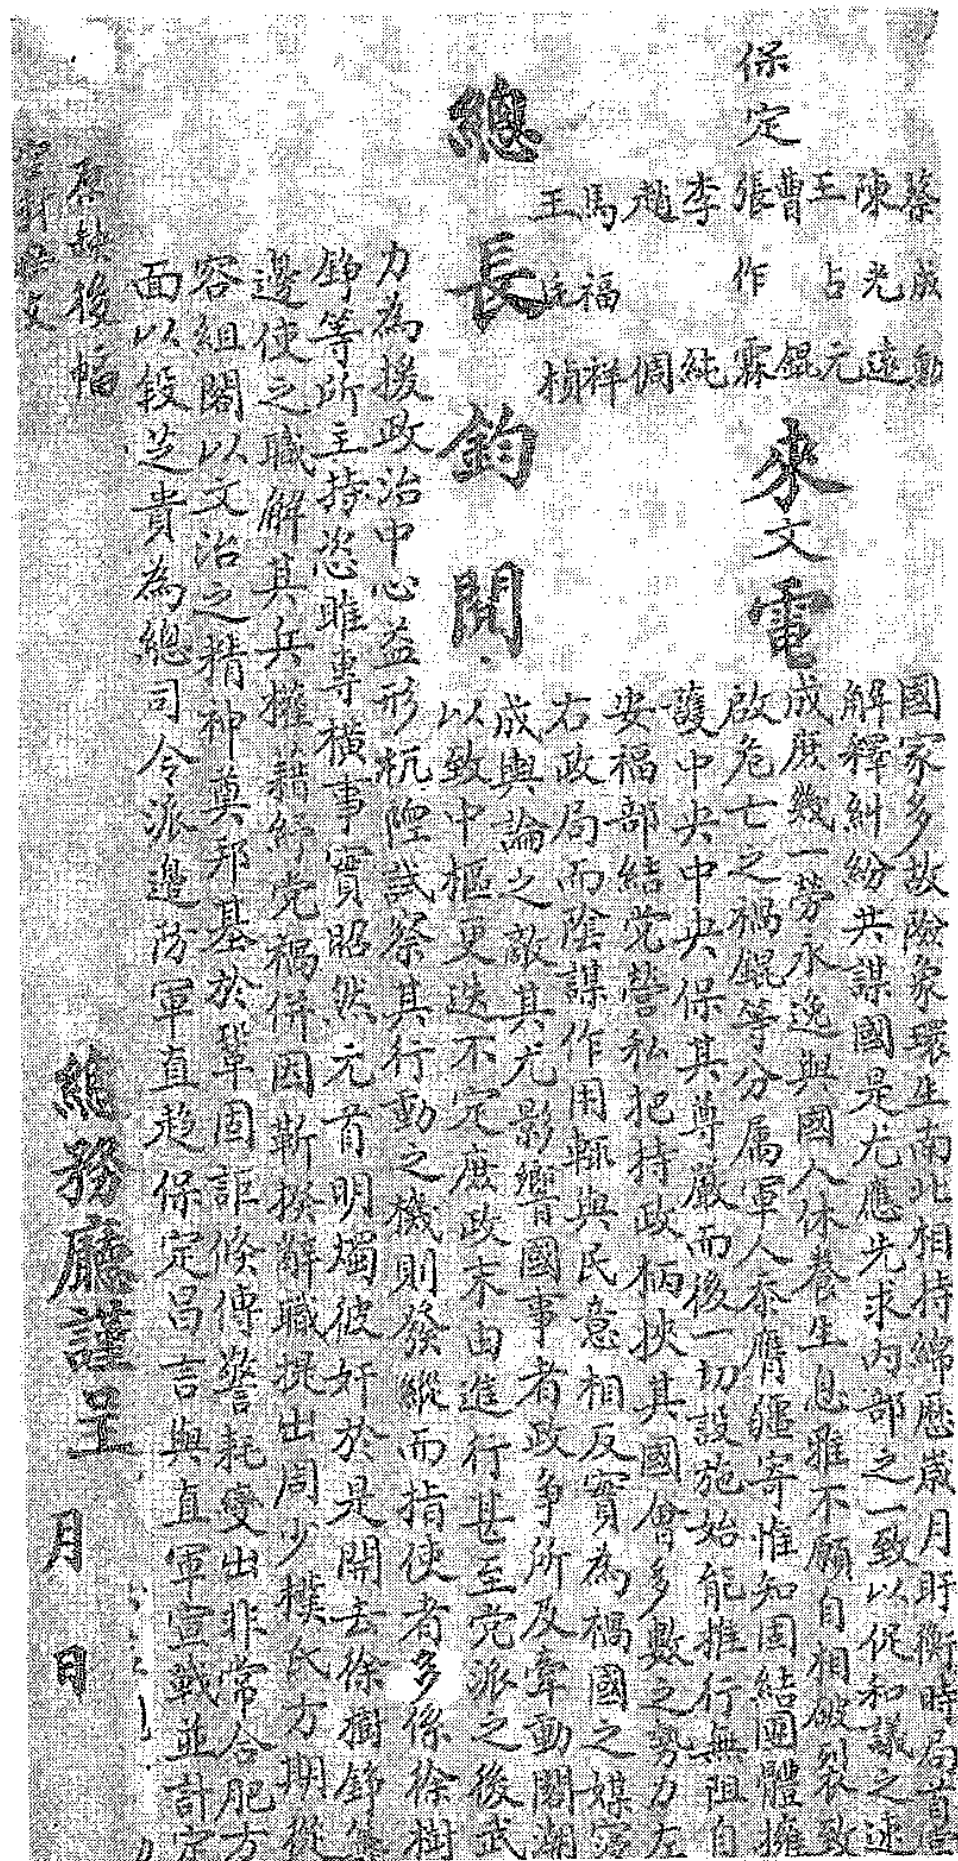 保定
蔡成勳
陳光遠
王占元
曹錕
張作霖
李純
趙倜
馬福祥
王廷楨
來文電
國家多故險象環生南北相持綿歷歲月盱衡時局首宜
解釋糾紛共謀國是尤應先求內部之一致以促和議之速
成庶幾一勞永逸與國人休養生息雖不願自相破裂致
啟危亡之禍錕等分屬軍人忝膺疆寄惟知固結團體擁
護中央中央保其尊嚴而後一切設施始能推行無阻自
安福部結党營私把持政柄挾其國會多數之勢力左
右政局而陰謀作用輒與民意相反實為禍國之媒寃
成輿論之敵其尤影響國事者政爭所及牽動閣潮
以致中樞更迭不定庶政末由進行甚至党派之後武
總長鈞閱
力為援政治中心益形杌隉試察其行動之機則發縱而指使者多係徐樹
錚等所主持恣睢專橫事實昭然元首明燭彼奸於是開去徐樹錚籌
邊使之職解其兵權藉紓党禍併因靳揆辭職提出周少樸氏方期從
容組閣以文治之精神奠邦基於鞏固詎倏傳警耗變出非常合肥方
面以段芝貴為總司令派邊防軍直趨保定昌言與直軍宣戰並計定
原缺後幅
總務廳謹呈 月 日